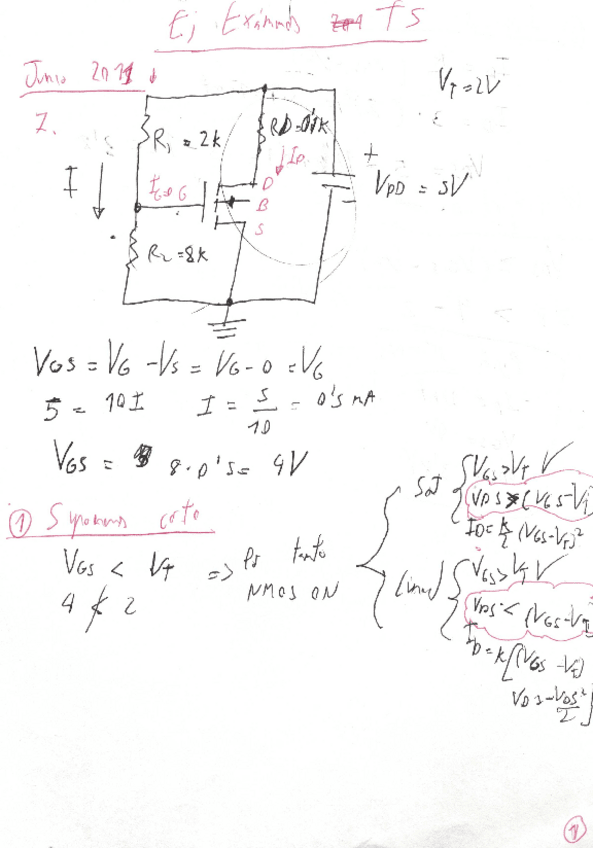 Ej Exámenes TS
Junio 2011
V_T = 2V
R1 = 2k
RD = 0'1k
I
I_D
I_G=0 G
D
B
S
+
-
V_DD = 5V
R2 = 8k
V_GS = V_G - V_S = V_G - 0 = V_G
5 = 10I I = 5/10 = 0'5 mA
V_GS = 8·0'5 = 4V
① Suponemos corte
V_GS < V_T => Por tanto
4 ≮ 2 NMOS ON
Sat
V_GS > V_T ✓
V_DS > (V_GS - V_T)
I_D = k/2 (V_GS - V_T)²
Lineal
V_GS > V_T ✓
V_DS < (V_GS - V_T)
I_D = k[(V_GS - V_T)
V_DS - V_DS²/2]
①